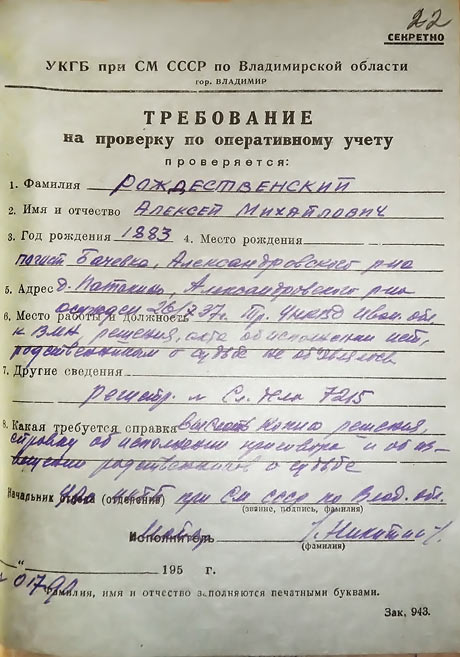 22
СЕКРЕТНО
УКГБ при СМ СССР по Владимирской области
гор. ВЛАДИМИР
ТРЕБОВАНИЕ
на проверку по оперативному учету
проверяется:
1. Фамилия РОЖДЕСТВЕНСКИЙ
2. Имя и отчество АЛЕКСЕЙ МИХАЙЛОВИЧ
3. Год рождения 1883 4. Место рождения
погост Александровского р-на
5. Адрес д. Александровского р-на
осужден 37г. Тр. УНКВД Иван. обл.
6. Место работы и должность
к ВМН решения, акта об исполнении нет,
родственникам о судьбе не объявлялось
7. Другие сведения
регистр. № Сл. дела 7215
8. Какая требуется справка выслать копию решения,
справку об исполнении приговора и об из-
вещении родственников о судьбе
Начальник отдела (отделения) при СМ СССР по Влад. обл.
(звание, подпись, фамилия)
Исполнитель Никитин
(фамилия)
„ “ 195 г.
Фамилия, имя и отчество заполняются печатными буквами.
Зак. 943.